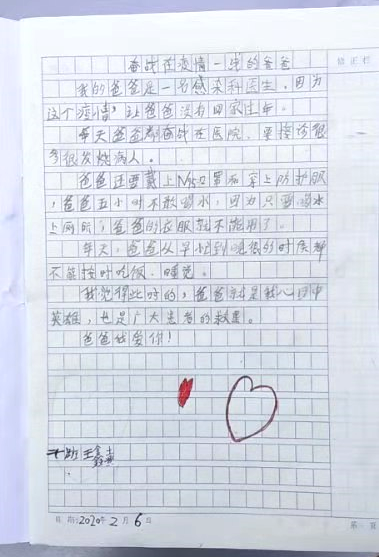 奋战在疫情一线的爸爸
我的爸爸是一名感染科医生。因为
这个疫情,让爸爸没有回家过年。
每天爸爸都奋战在医院,要接诊很
多很发烧病人。
爸爸还要戴上N95口罩和穿上防护服
,爸爸五小时不敢喝水,因为只要喝水
上厕所,爸爸的衣服就不能用了。
每天,爸爸从早忙到晚很的时候都
不能按时吃饭、睡觉。
我觉得此时的,爸爸就是我心目中
英雄,也是广大患者的救星。
爸爸我爱你!
班 王鑫
日期:2020年2月6日
第 页